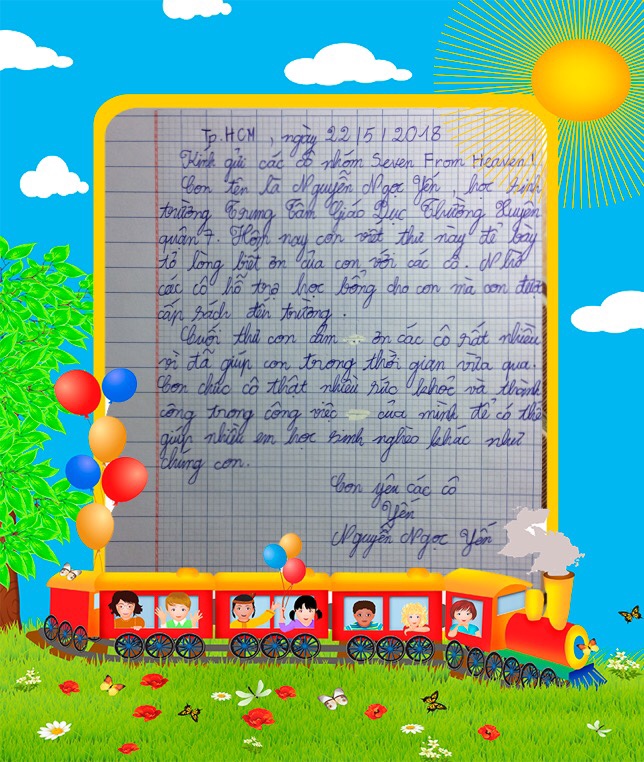 Tp.HCM, ngày 22/5/2018
Kính gửi các cô nhóm Seven From Heaven!
Con tên là Nguyễn Ngọc Yến, học sinh
trường Trung Tâm Giáo Dục Thường Xuyên
quận 7. Hôm nay con viết thư này để bày
tỏ lòng biết ơn của con với các cô. Nhờ
các cô hỗ trợ học bổng cho con mà con được
cắp sách đến trường.
Cuối thư con cảm ơn các cô rất nhiều
vì đã giúp con trong thời gian vừa qua.
Con chúc cô thật nhiều sức khỏe và thành
công trong công việc của mình để có thể
giúp nhiều em học sinh nghèo khác như
chúng con.
Con yêu các cô
Yến
Nguyễn Ngọc Yến